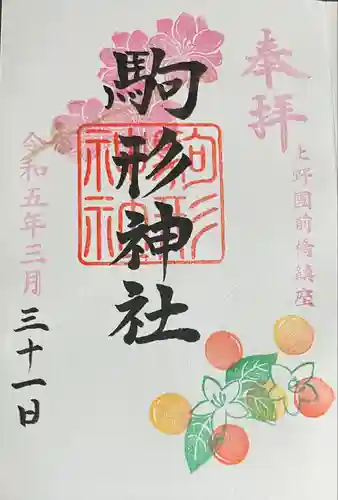 奉拝
上野國前橋鎮座
駒形神社
駒形
神社
令和五年三月
三十一日